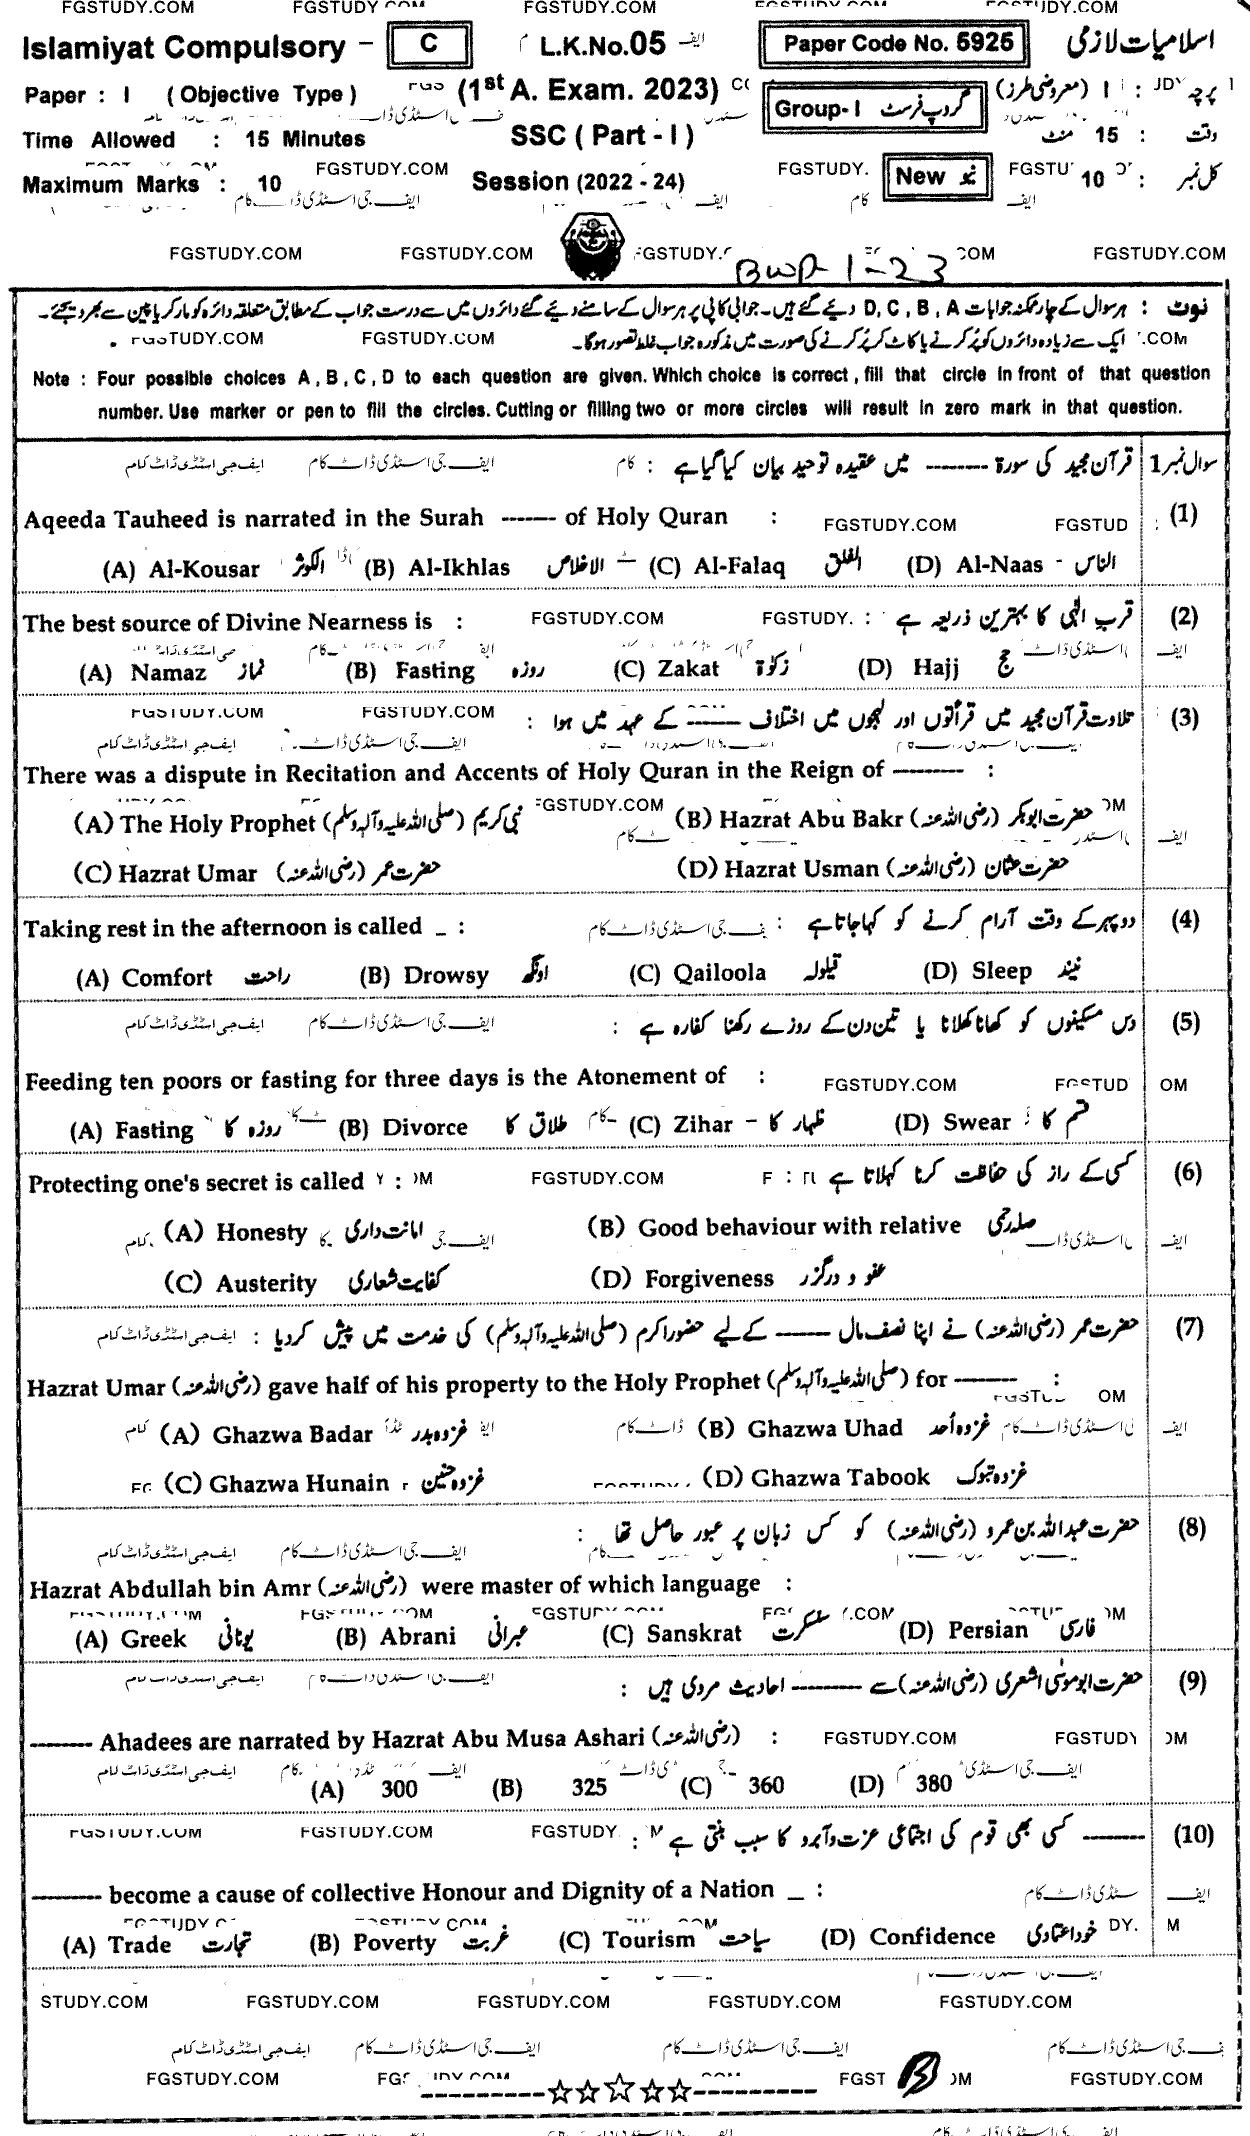 FGSTUDY.COM FGSTUDY.COM FGSTUDY.COM FGSTUDY.COM FGSTUDY.COM
Islamiyat Compulsory - C L.K.No.05 Paper Code No. 5925 اسلامیات لازمی
Paper : I ( Objective Type ) (1st A. Exam. 2023) Group-I گروپ فرسٹ پرچہ : I (معروضی طرز)
Time Allowed : 15 Minutes SSC ( Part - I ) وقت : 15 منٹ
Maximum Marks : 10 FGSTUDY.COM Session (2022 - 24) FGSTUDY. New نیو کل نمبر : 10
FGSTUDY.COM FGSTUDY.COM FGSTUDY. COM FGSTUDY.COM
BWP-1-23
نوٹ : ہر سوال کے چار ممکنہ جوابات D, C, B, A دیئے گئے ہیں۔ جوابی کاپی پر ہر سوال کے سامنے دیئے گئے دائروں میں سے درست جواب کے مطابق متعلقہ دائرہ کو مارکر یا پین سے بھر دیجئے۔
ایک سے زیادہ دائروں کو پُر کرنے یا کاٹ کر پُر کرنے کی صورت میں مذکورہ جواب غلط تصور ہوگا۔
Note : Four possible choices A , B , C , D to each question are given. Which choice is correct , fill that circle in front of that question
number. Use marker or pen to fill the circles. Cutting or filling two or more circles will result in zero mark in that question.
سوال نمبر 1 قرآن مجید کی سورۃ ------- میں عقیدہ توحید بیان کیا گیا ہے :
Aqeeda Tauheed is narrated in the Surah ------- of Holy Quran : FGSTUDY.COM (1)
(A) Al-Kousar الکوثر (B) Al-Ikhlas الاخلاص (C) Al-Falaq الفلق (D) Al-Naas - الناس
The best source of Divine Nearness is : FGSTUDY.COM FGSTUDY. قرب الٰہی کا بہترین ذریعہ ہے : (2)
(A) Namaz نماز (B) Fasting روزہ (C) Zakat زکوٰۃ (D) Hajj حج
FGSTUDY.COM FGSTUDY.COM تلاوت قرآن مجید میں قرأتوں اور لہجوں میں اختلاف ------- کے عہد میں ہوا : (3)
There was a dispute in Recitation and Accents of Holy Quran in the Reign of -------- :
(A) The Holy Prophet (صلی اللہ علیہ وآلہ وسلم) نبی کریم (B) Hazrat Abu Bakr (رضی اللہ عنہ) حضرت ابوبکر
(C) Hazrat Umar (رضی اللہ عنہ) حضرت عمر (D) Hazrat Usman (رضی اللہ عنہ) حضرت عثمان
Taking rest in the afternoon is called _ : دوپہر کے وقت آرام کرنے کو کہا جاتا ہے : (4)
(A) Comfort راحت (B) Drowsy اونگھ (C) Qailoola قیلولہ (D) Sleep نیند
دس مسکینوں کو کھانا کھلانا یا تین دن کے روزے رکھنا کفارہ ہے : (5)
Feeding ten poors or fasting for three days is the Atonement of : FGSTUDY.COM
(A) Fasting روزہ کا (B) Divorce طلاق کا (C) Zihar - ظہار کا (D) Swear قسم کا
Protecting one's secret is called : FGSTUDY.COM کسی کے راز کی حفاظت کرنا کہلاتا ہے : (6)
(A) Honesty امانت داری (B) Good behaviour with relative صلہ رحمی
(C) Austerity کفایت شعاری (D) Forgiveness عفو و درگزر
حضرت عمر (رضی اللہ عنہ) نے اپنا نصف مال ------- کے لیے حضور اکرم (صلی اللہ علیہ وآلہ وسلم) کی خدمت میں پیش کر دیا : (7)
Hazrat Umar (رضی اللہ عنہ) gave half of his property to the Holy Prophet (صلی اللہ علیہ وآلہ وسلم) for ------- :
(A) Ghazwa Badar غزوہ بدر (B) Ghazwa Uhad غزوہ اُحد
(C) Ghazwa Hunain غزوہ حنین (D) Ghazwa Tabook غزوہ تبوک
حضرت عبداللہ بن عمرو (رضی اللہ عنہ) کو کس زبان پر عبور حاصل تھا : (8)
Hazrat Abdullah bin Amr (رضی اللہ عنہ) were master of which language :
(A) Greek یونانی (B) Abrani عبرانی (C) Sanskrat سنسکرت (D) Persian فارسی
حضرت ابوموسیٰ اشعری (رضی اللہ عنہ) سے -------- احادیث مروی ہیں : (9)
------- Ahadees are narrated by Hazrat Abu Musa Ashari (رضی اللہ عنہ) : FGSTUDY.COM
(A) 300 (B) 325 (C) 360 (D) 380
FGSTUDY.COM FGSTUDY.COM FGSTUDY. ------- کسی بھی قوم کی اجتماعی عزت و آبرو کا سبب بنتی ہے : (10)
-------- become a cause of collective Honour and Dignity of a Nation _ :
(A) Trade تجارت (B) Poverty غربت (C) Tourism سیاحت (D) Confidence خود اعتمادی
STUDY.COM FGSTUDY.COM FGSTUDY.COM FGSTUDY.COM FGSTUDY.COM
ایف جی اسٹڈی ڈاٹ کام ایف جی اسٹڈی ڈاٹ کام ایف جی اسٹڈی ڈاٹ کام
FGSTUDY.COM FGSTUDY.COM
----------☆☆☆☆☆----------